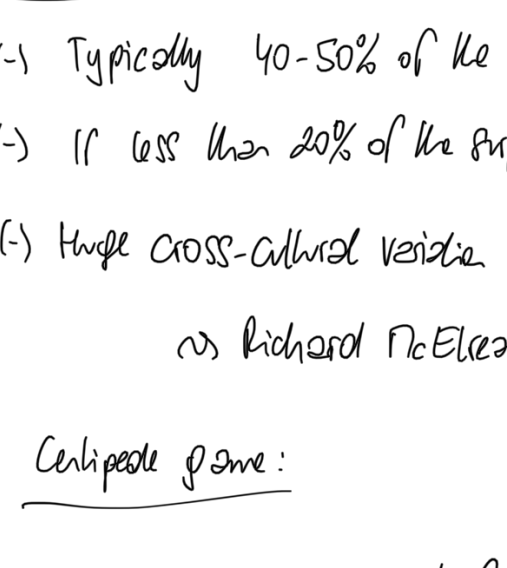 (-) Typically 40-50% of the
(-) If less than 20% of the
(-) Huge cross-cultural variation
~> Richard McElrea
Centipede game: